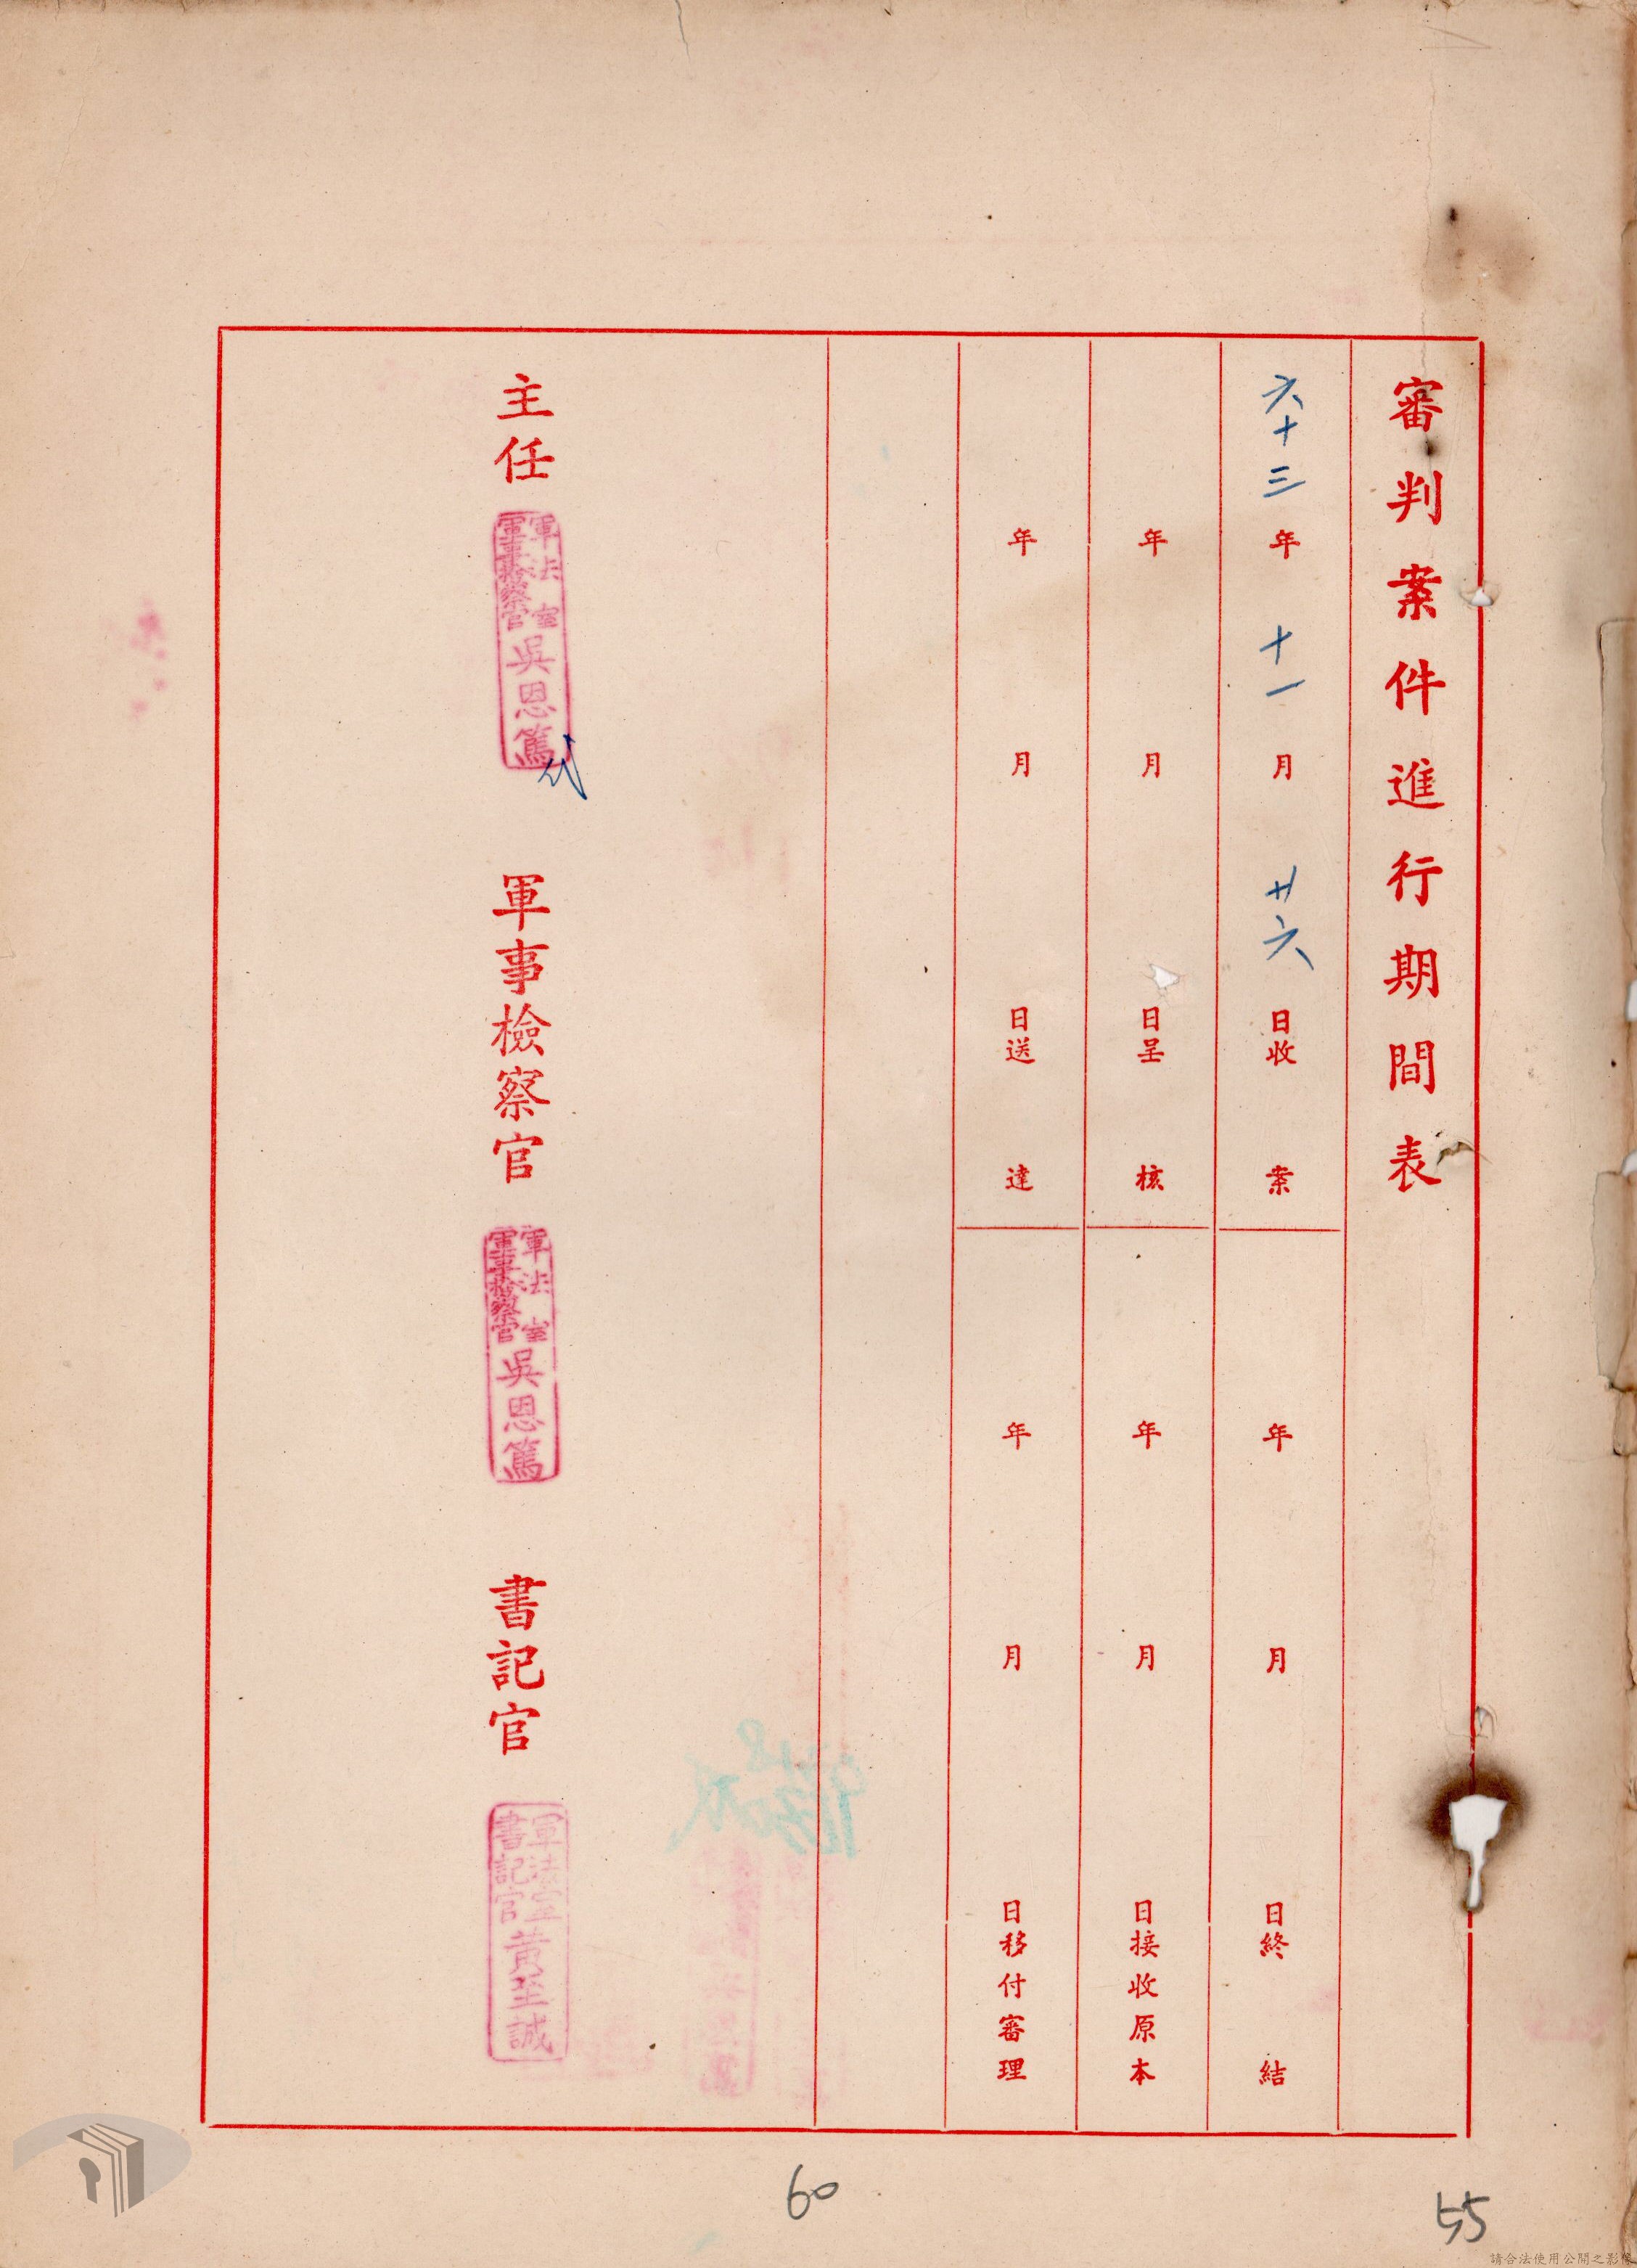 審判案件進行期間表
六十三年十一月廿六日收案
年月日終結
年月日呈核
年月日接收原本
年月日送達
年月日移付審理
主任
軍法室
軍事檢察官
吳恩篤
代
軍事檢察官
軍法室
軍事檢察官
吳恩篤
書記官
軍法室
書記官
黃至誠
60
55
請合法使用公開之影像